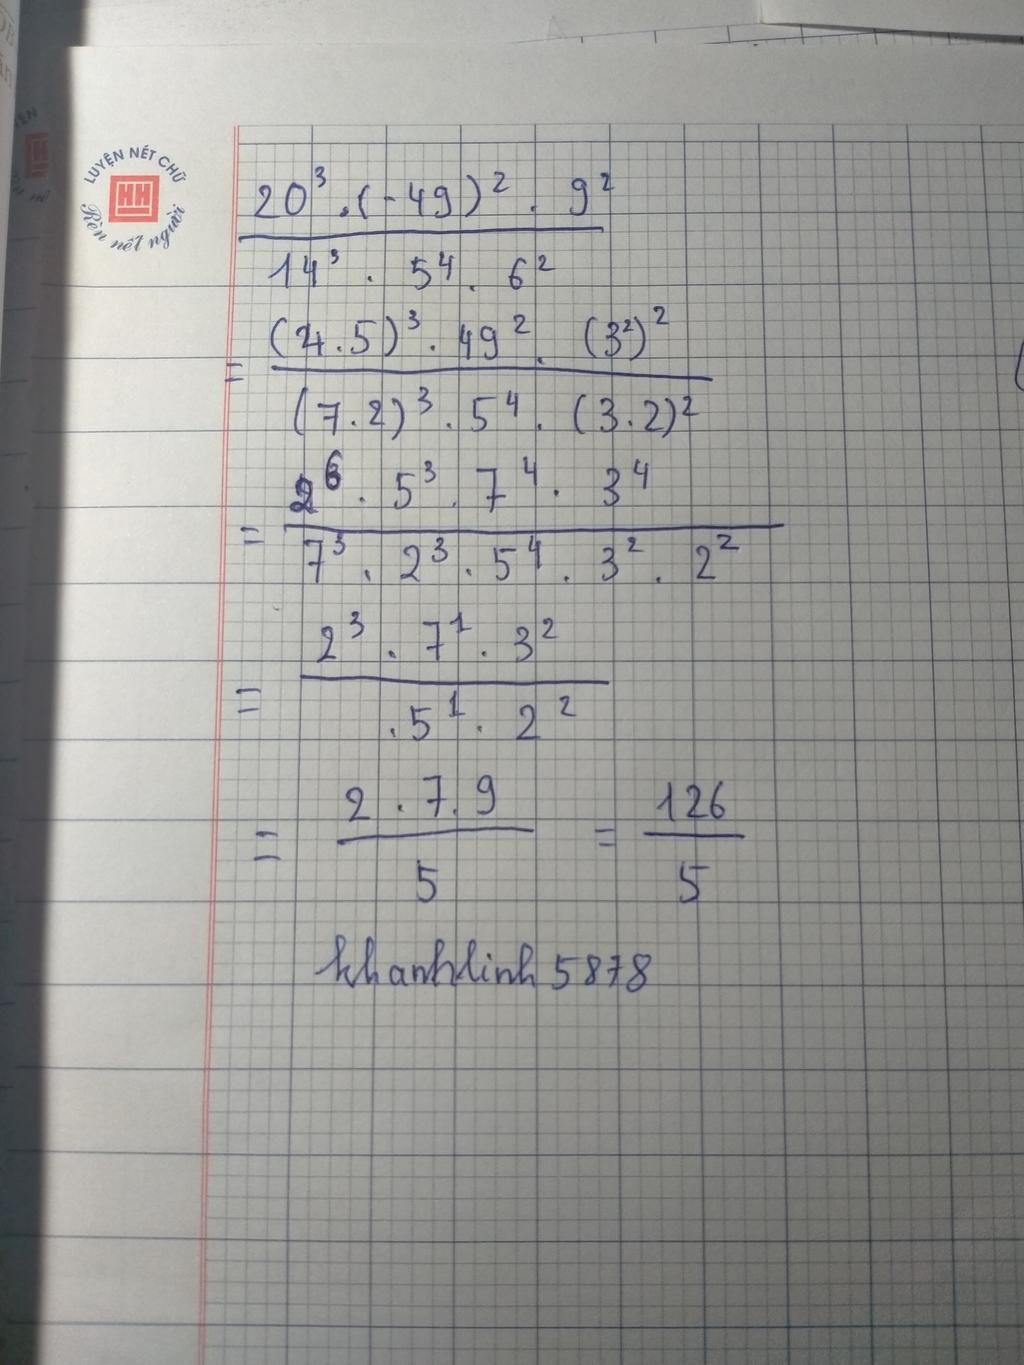 LUYỆN NÉT CHỮ
HH
Rèn nết người
20³ . (-49)² . 9²
14³ . 5⁴ . 6²
= (4.5)³ . 49² . (3²)²
(7.2)³ . 5⁴ . (3.2)²
= 2⁶ . 5³ . 7⁴ . 3⁴
7³ . 2³ . 5⁴ . 3² . 2²
= 2³ . 7¹ . 3²
. 5¹ . 2²
= 2 . 7 . 9 = 126
5 5
khanhlinh 5878